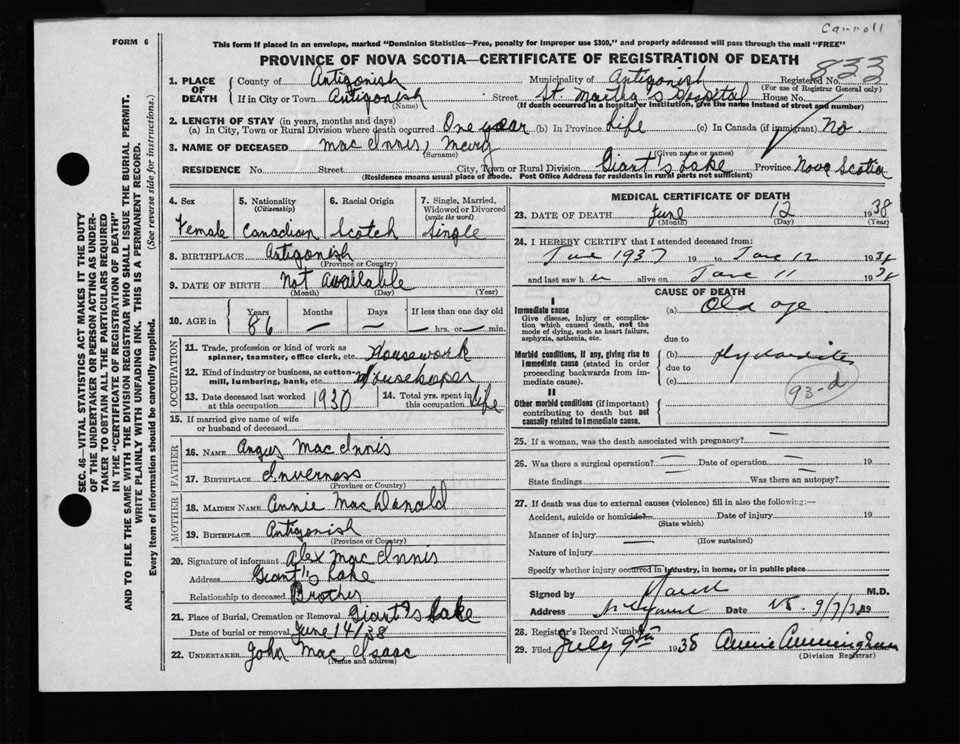 Carroll
FORM 6
This form if placed in an envelope, marked "Dominion Statistics—Free, penalty for improper use $300," and properly addressed will pass through the mail "FREE"
PROVINCE OF NOVA SCOTIA—CERTIFICATE OF REGISTRATION OF DEATH
SEC. 46—VITAL STATISTICS ACT MAKES IT THE DUTY
OF THE UNDERTAKER OR PERSON ACTING AS UNDER-
TAKER TO OBTAIN ALL THE PARTICULARS REQUIRED
IN THE "CERTIFICATE OF REGISTRATION OF DEATH"
AND TO FILE THE SAME WITH THE DIVISION REGISTRAR WHO SHALL ISSUE THE BURIAL PERMIT.
WRITE PLAINLY WITH UNFADING INK. THIS IS A PERMANENT RECORD.
Every item of information should be carefully supplied. (See reverse side for instructions.)
1. PLACE OF DEATH County of Antigonish Municipality of Antigonish Registered No. 833
(For use of Registrar General only)
If in City or Town Antigonish Street St. Martha's Hospital House No.
(Name) (If death occurred in a hospital or institution, give the name instead of street and number)
2. LENGTH OF STAY (in years, months and days)
(a) In City, Town or Rural Division where death occurred One year (b) In Province Life (c) In Canada (if immigrant) No.
3. NAME OF DECEASED Mac Innis, Mary
(Surname) (Given name or names)
RESIDENCE No. Street City, Town or Rural Division Giant's Lake Province Nova Scotia
(Residence means usual place of abode. Post Office Address for residents in rural parts not sufficient)
4. Sex 5. Nationality (Citizenship) 6. Racial Origin 7. Single, Married, Widowed or Divorced (write the word)
Female Canadian Scotch Single
8. BIRTHPLACE Antigonish
(Province or Country)
9. DATE OF BIRTH Not Available
(Month) (Day) (Year)
10. AGE in Years Months Days If less than one day old
86 — — — hrs. or — min.
OCCUPATION
11. Trade, profession or kind of work as spinner, teamster, office clerk, etc. Housework
12. Kind of industry or business, as cotton-mill, lumbering, bank, etc. Housekeeper
13. Date deceased last worked at this occupation 1930 14. Total yrs. spent in this occupation Life
15. If married give name of wife or husband of deceased
FATHER
16. NAME Angus Mac Innis
17. BIRTHPLACE Inverness
(Province or Country)
MOTHER
18. MAIDEN NAME Annie Mac Donald
19. BIRTHPLACE Antigonish
(Province or Country)
20. Signature of informant Alex Mac Innis
Address Giant's Lake
Relationship to deceased Brother
21. Place of Burial, Cremation or Removal Giant's Lake
Date of burial or removal June 14/38
22. UNDERTAKER John Mac Isaac
(Name and address)
MEDICAL CERTIFICATE OF DEATH
23. DATE OF DEATH June 12 1938
(Month) (Day) (Year)
24. I HEREBY CERTIFY that I attended deceased from:
June 1937 19 to June 12 1938
and last saw h er alive on June 11 1938
CAUSE OF DEATH
I
Immediate cause (a) Old age
Give disease, injury or complication which caused death, not the mode of dying, such as heart failure, asphyxia, asthenia, etc.
due to
Morbid conditions, if any, giving rise to immediate cause (stated in order proceeding backwards from immediate cause). (b)
due to
(c) 93-d
II
Other morbid conditions (if important) contributing to death but not causally related to immediate cause.
25. If a woman, was the death associated with pregnancy? —
26. Was there a surgical operation? — Date of operation — 19
State findings — Was there an autopsy?
27. If death was due to external causes (violence) fill in also the following:—
Accident, suicide or homicide? — Date of injury 19
(State which)
Manner of injury —
(How sustained)
Nature of injury
Specify whether injury occurred in industry, in home, or in public place
Signed by M.D.
Address Date 9/7/38 19
28. Registrar's Record Number
29. Filed July 9th 1938 Annie Cunningham
(Division Registrar)